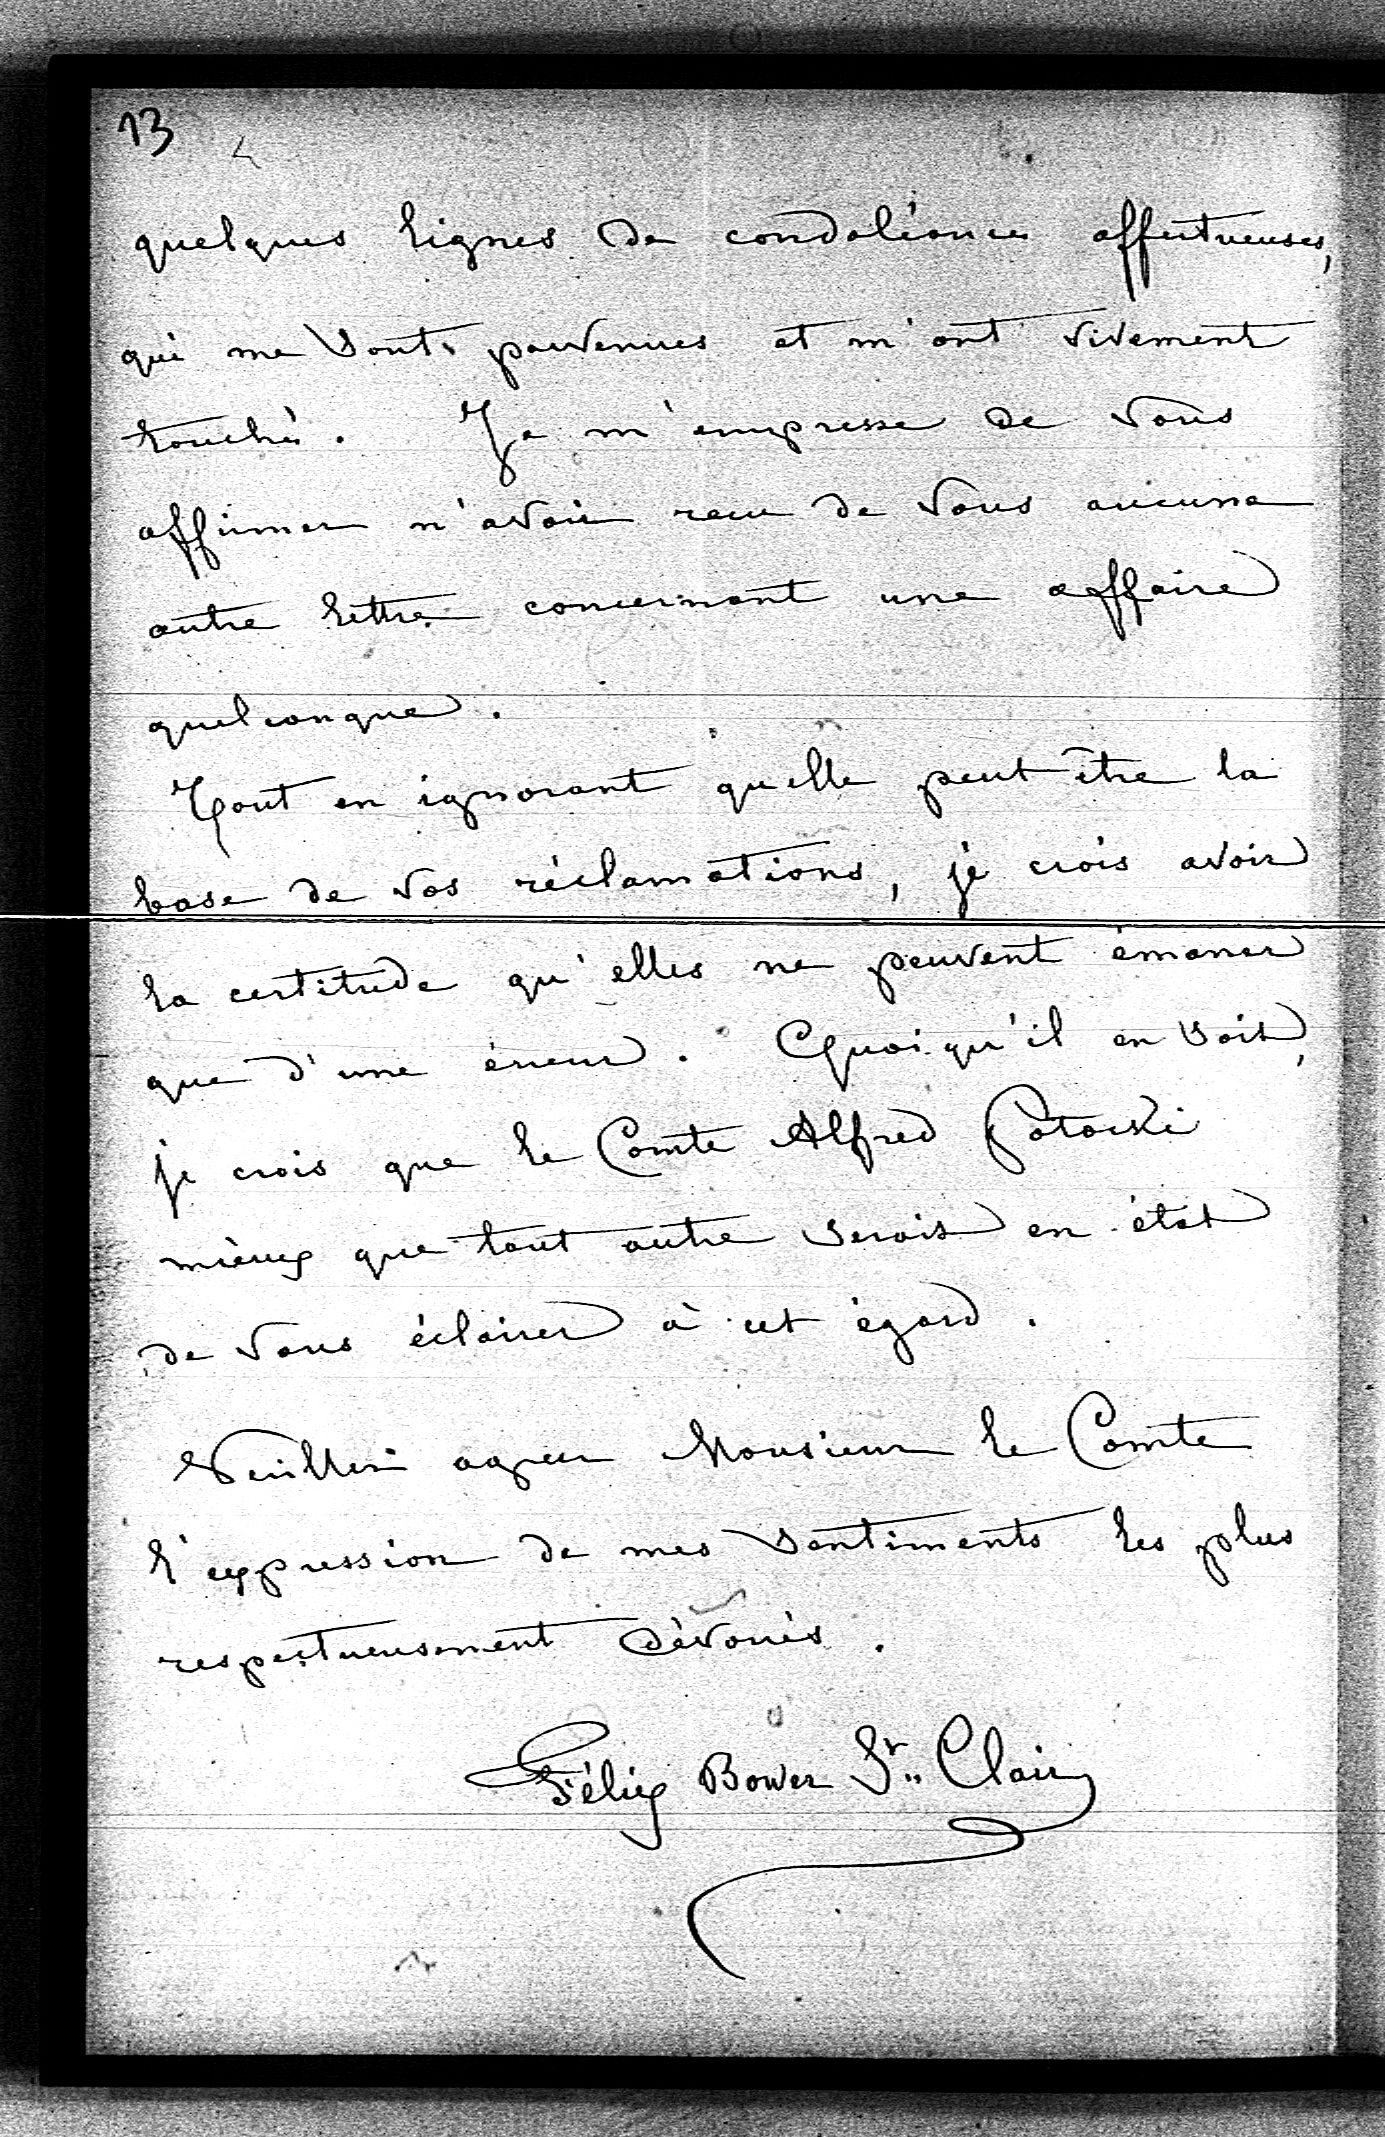 13
quelques lignes de condoléances affectueuses,
qui me sont parvenues et m'ont vivement
touché. Je m'empresse de vous
affirmer n'avoir recu de vous aucune
autre lettre concernant une affaire
quelconque.
Tout en ignorant quelle peut être la
base de vos réclamations, je crois avoir
la certitude qu'elles ne peuvent émaner
que d'une érreur. Quoiqu'il en soit,
je crois que le Comte Alfred Potocki
mieux que tout autre serait en état
de vous éclairer à cet égard.
Veuillez agreer Monsieur le Comte
l'expression de mes sentiments les plus
respectueusement dévoués.
Félix Bower St. Clair